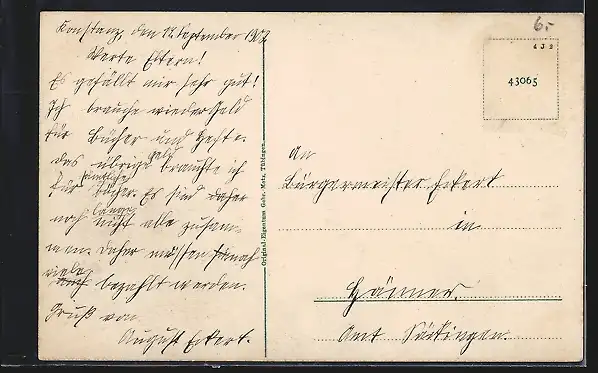 Konstanz, den 17. September 1912
Werte Eltern!
Es gefällt mir sehr gut!
Ich brauche wieder Geld
für Bücher und Hefte.
das übrige Geld brauchte ich
für sämtliche Bücher. Es sind daher
noch lange nicht alle zusam-
men. Daher müssen
viele bezahlt werden.
Gruß von
August Eckert.
Original-Eigentum Gebr. Metz, Tübingen
6.-
432
43065
An
Bürgermeister Eckert
in
Hänner.
Amt Säckingen.